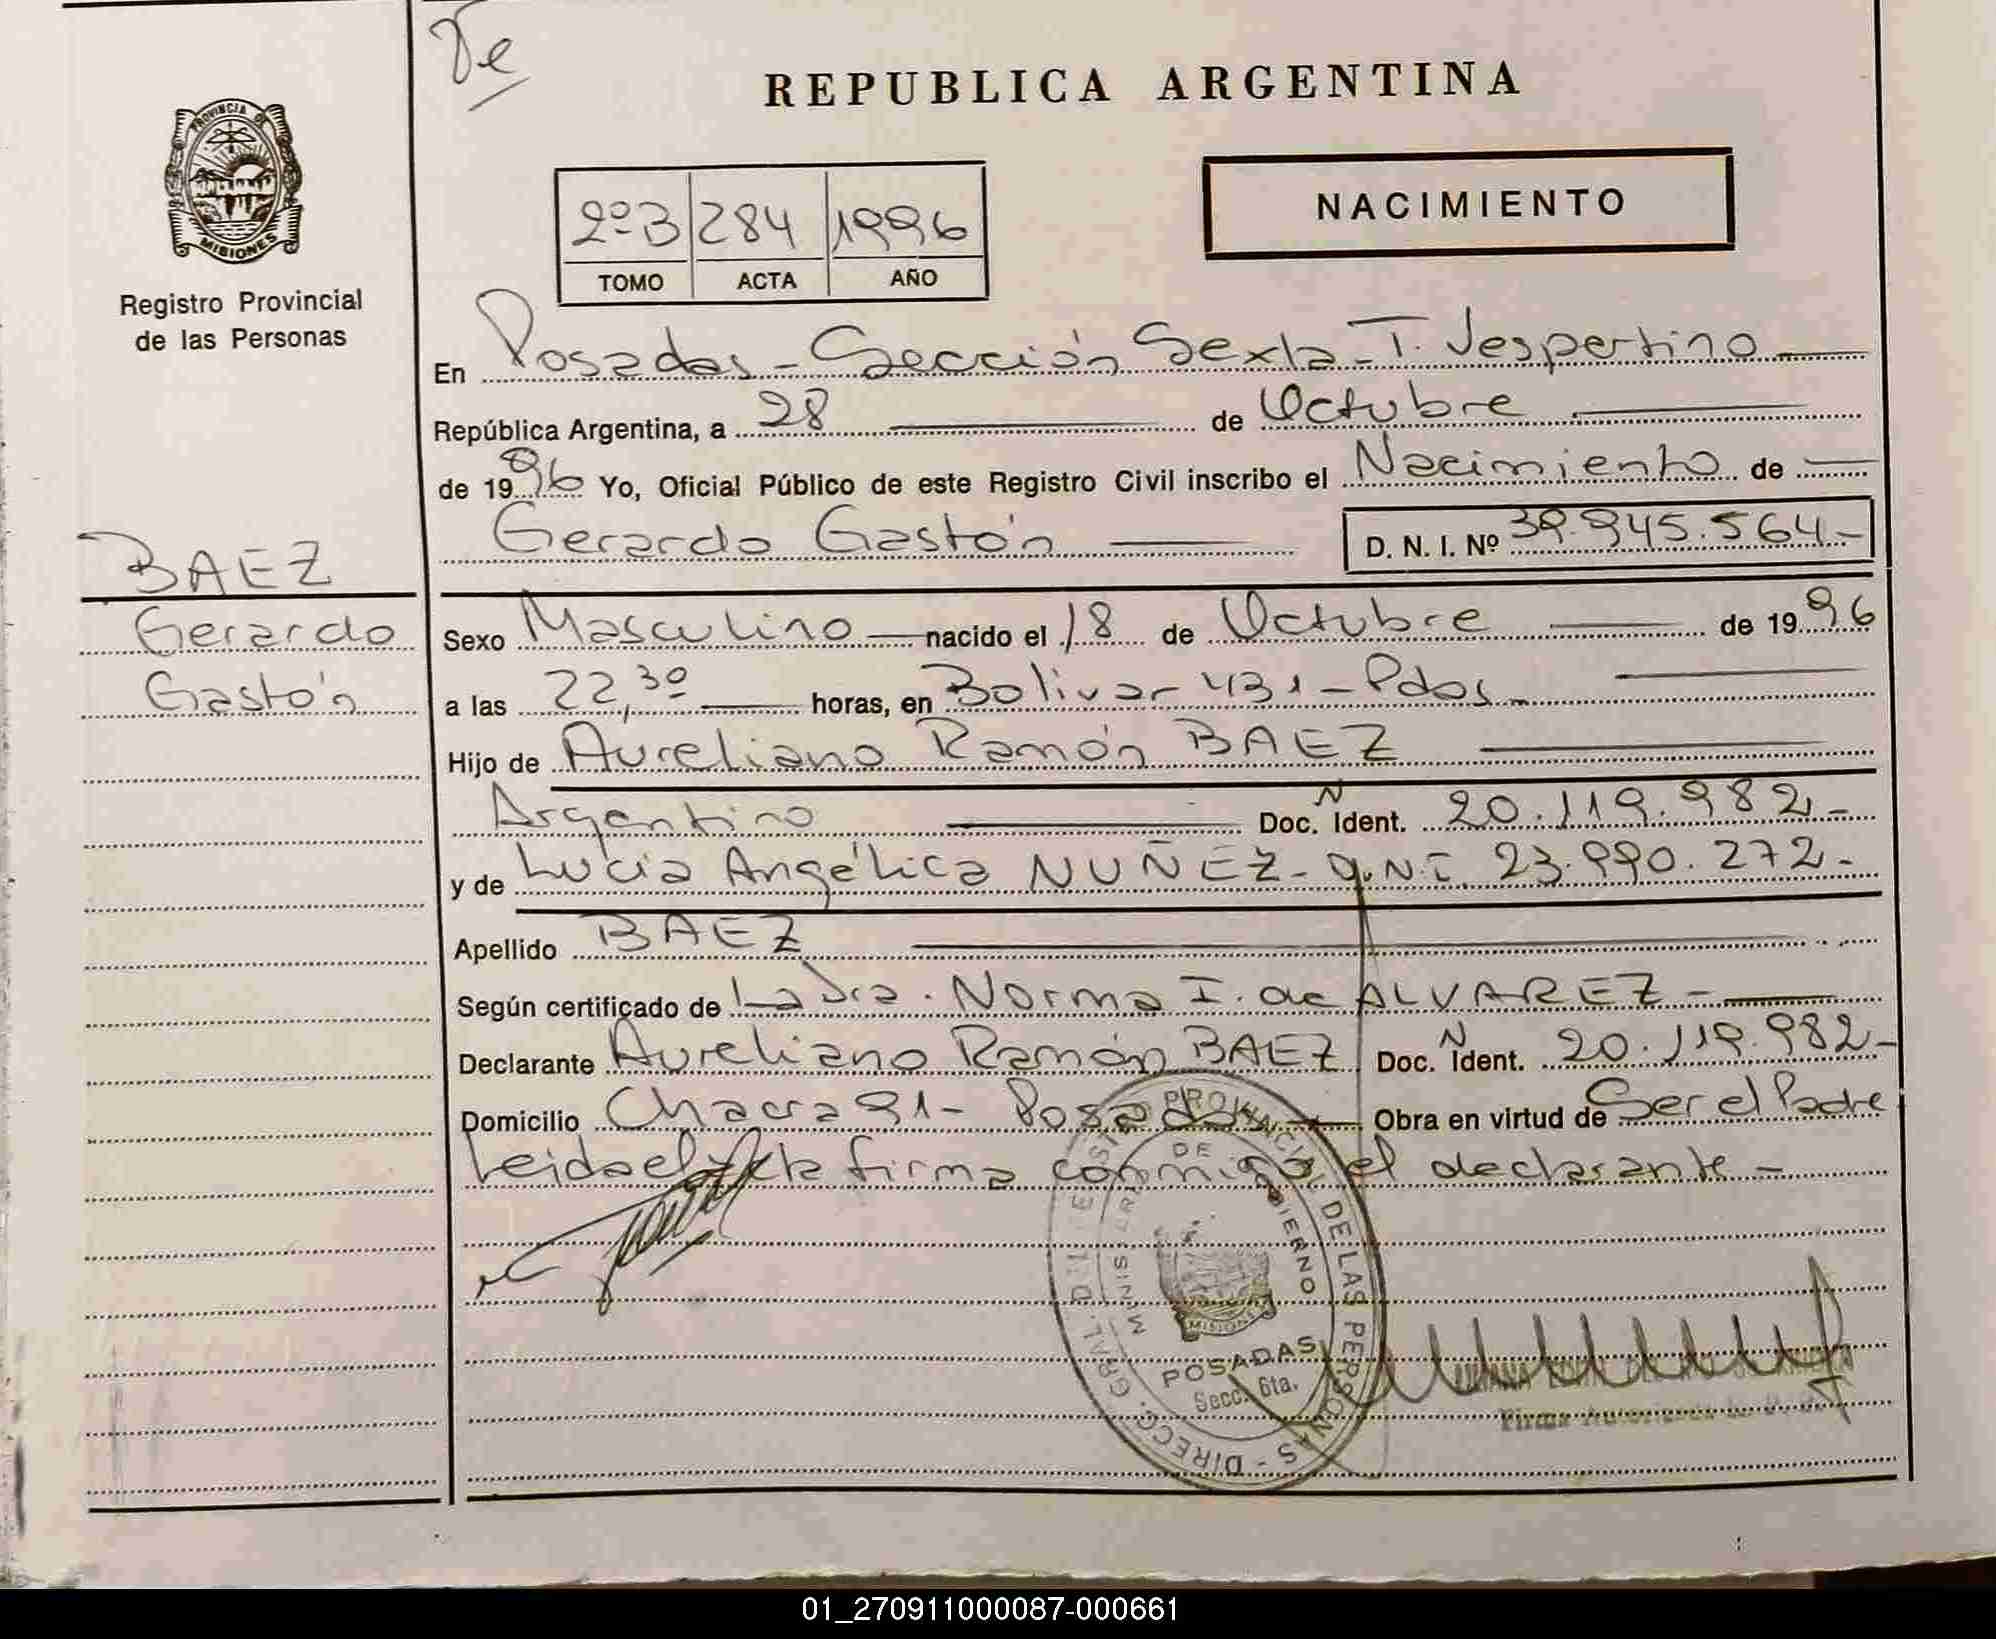 De
REPUBLICA ARGENTINA
PROVINCIA DE
MISIONES
NACIMIENTO
2º B 284 1996
TOMO ACTA AÑO
Registro Provincial
de las Personas
En Posadas - Sección Sexta - T. Vespertino
República Argentina, a 28 de Octubre
de 1996 Yo, Oficial Público de este Registro Civil inscribo el Nacimiento de
Gerardo Gastón D. N. I. Nº 39.945.564-
BAEZ
Gerardo
Gastón
Sexo Masculino nacido el 18 de Octubre de 1996
a las 22,30 horas, en Bolivar 431 - Pdas -
Hijo de Aureliano Ramón BAEZ
Argentino Doc. Ñ Ident. 20.119.982-
y de Lucia Angélica NUÑEZ - D.N.I. 23.990.272-
Apellido BAEZ
Según certificado de La Dra. Norma I. de ALVAREZ -
Declarante Aureliano Ramón BAEZ Doc. Ñ Ident. 20.119.982-
Domicilio Chacra 91 - Posadas Obra en virtud de Ser el Padre
Leida el acta firma conmigo el declarante -
DIRECC. GRAL. DEL REGISTRO PROVINCIAL DE LAS PERSONAS -
MINISTERIO DE GOBIERNO
MISIONES
POSADAS
Secc. 6ta.
Firma Autorizada
01_270911000087-000661